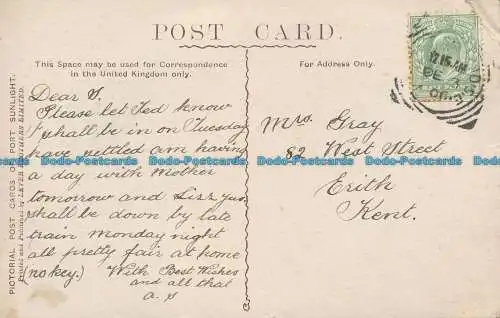 POST CARD.
This Space may be used for Correspondence
in the United Kingdom only.
For Address Only.
PICTORIAL POST CARDS OF PORT SUNLIGHT.
Printed and Published by LEVER BROTHERS LIMITED.
Dear S.
Please let Ted know
shall be in on Tuesday
have settled am having
a day with Mother
tomorrow and Lizz
shall be down by late
train monday night
all pretty fair at home
(no key.) With Best Wishes
and all that
a. s
Mrs Gray
82 West Street
Erith
Kent.
12 15 AM
DE
Bobbooks Ltd Bobbooks Ltd Bobbooks Ltd Bobbooks Ltd Bobbooks Ltd